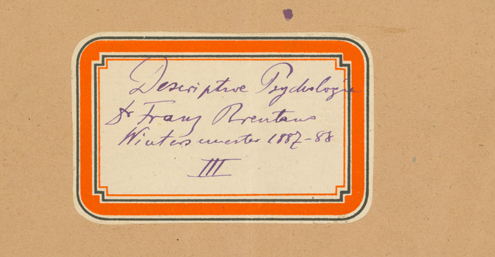 Descriptive Psychologie
Dr Franz Brentano
Wintersemester 1887-88
III